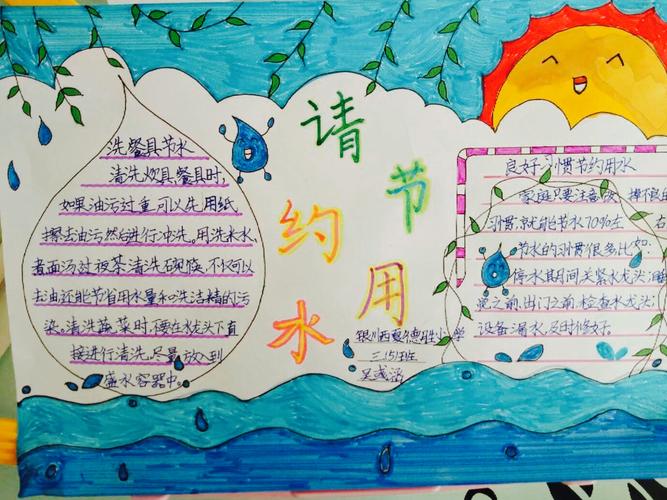 洗餐具节水
清洗炊具、餐具时,
如果油污过重,可以先用纸
擦去油污,然后进行冲洗。用洗米水、
煮面汤过夜茶清洗碗筷,不仅可以
去油,还能节省用水量和洗洁精的污
染。清洗蔬菜时,不要在水龙头下直
接进行清洗,尽量放入到
盛水容器中。
请节
约用
水
银川西夏 小学
三(5)班
吴 涵
良好习惯节约用水
家庭只要注意 掉不良
习惯,就能节水70%左右
节水的习惯很多,比如:
停水期间关紧水龙头;
之前、出门之前,检查水龙头;
设备漏水,及时修好。